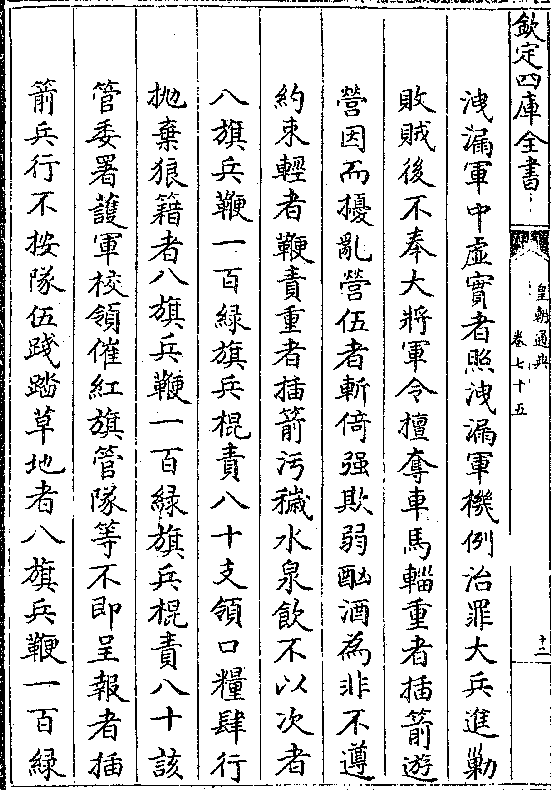 欽定四庫全書
皇朝通典
卷七十五
十二
洩漏軍中虛實者照洩漏軍機例治罪大兵進勦
敗賊後不奉大將軍令擅奪車馬輜重者插箭遊
營因而擾亂營伍者斬倚强欺弱酗酒為非不遵
約束輕者鞭責重者插箭汚穢水泉飲不以次者
八旗兵鞭一百緑旗兵棍責八十支領口糧肆行
抛棄狼籍者八旗兵鞭一百緑旗兵棍責八十該
管委署護軍校領催紅旗管隊等不即呈報者插
箭兵行不按隊伍踐踏草地者八旗兵鞭一百緑